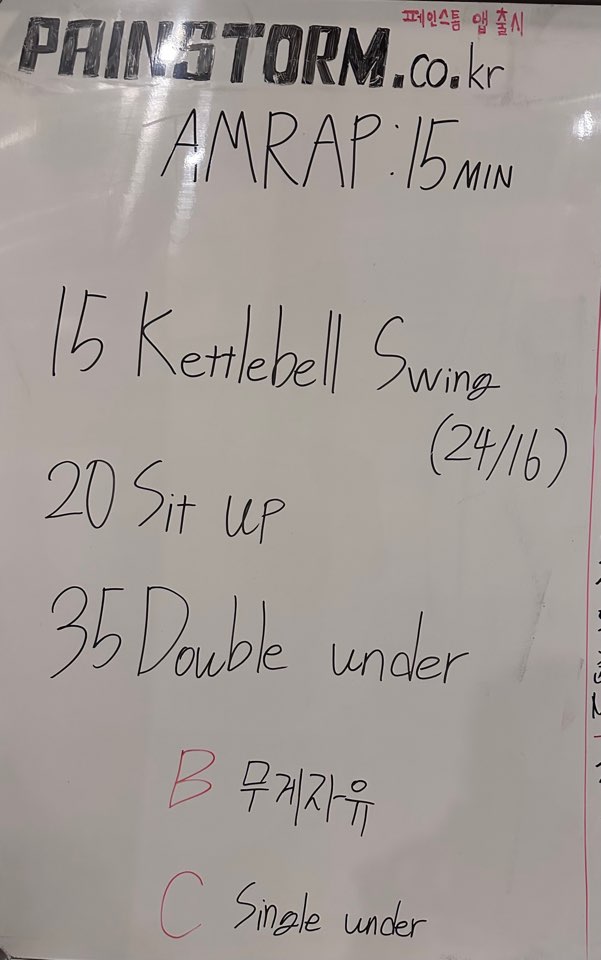 페인스톰 앱 출시
PAINSTORM.co.kr
AMRAP:15 MIN
15 Kettlebell Swing
(24/16)
20 Sit up
35 Double under
B 무게자유
C Single under